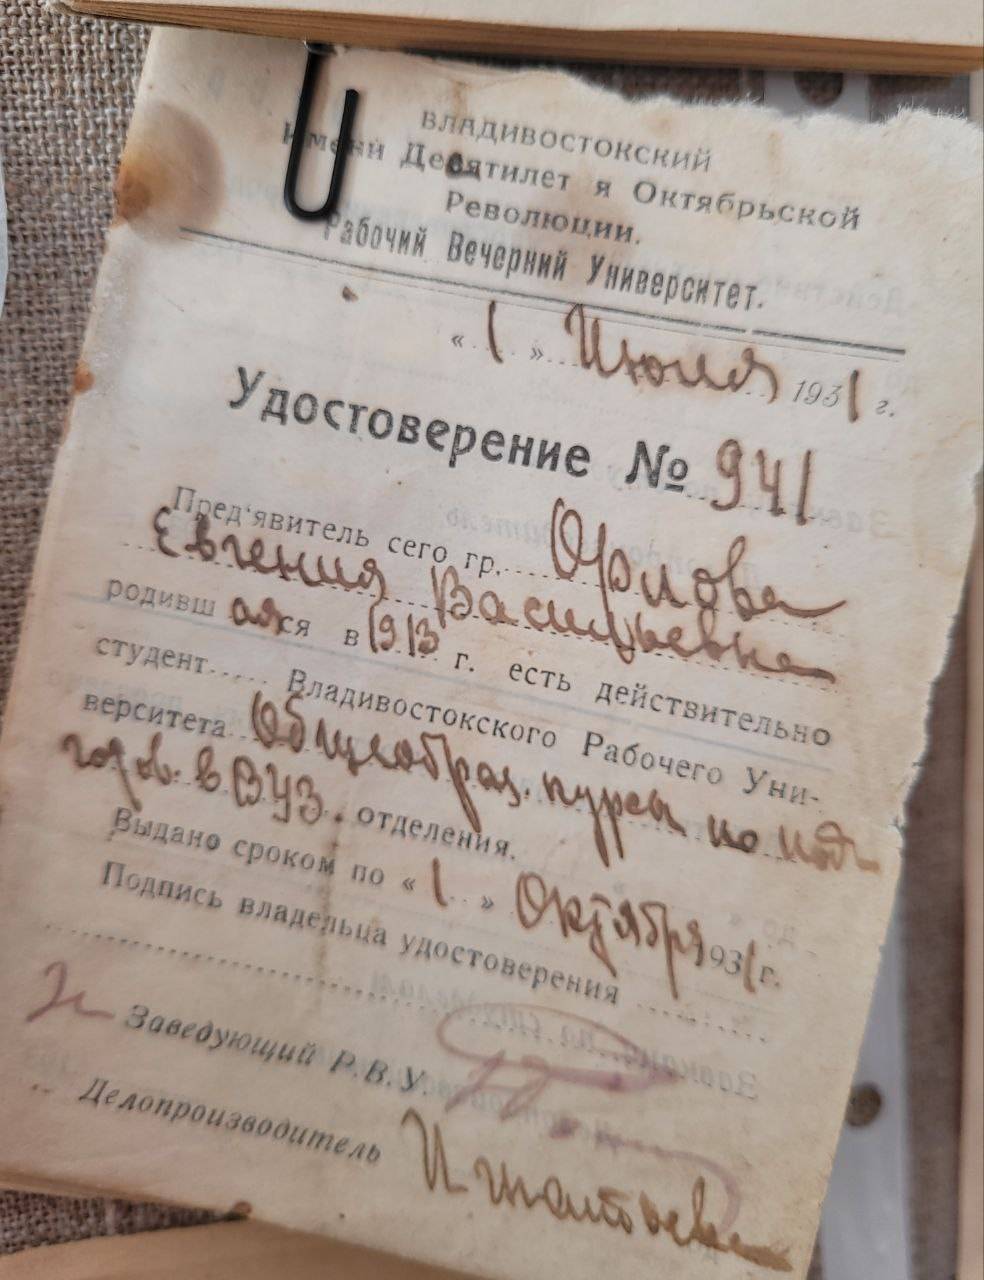 ВЛАДИВОСТОКСКИЙ
имени Десятилет я Октябрьской
Революции.
Рабочий Вечерний Университет.
« 1 » Июня 1931 г.
Удостоверение № 941
Пред'явитель сего гр. Орлова
Евгения Васильевна
родивш аяся в 1913 г. есть действительно
студент..... Владивостокского Рабочего Уни-
верситета Общеобраз. курсы по под
готов. в ВУЗ. отделения.
Выдано сроком по « 1 » Октября 1931 г.
Подпись владельца удостоверения
Заведующий Р.В.У.
Делопроизводитель